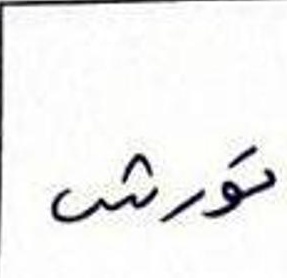 تورش